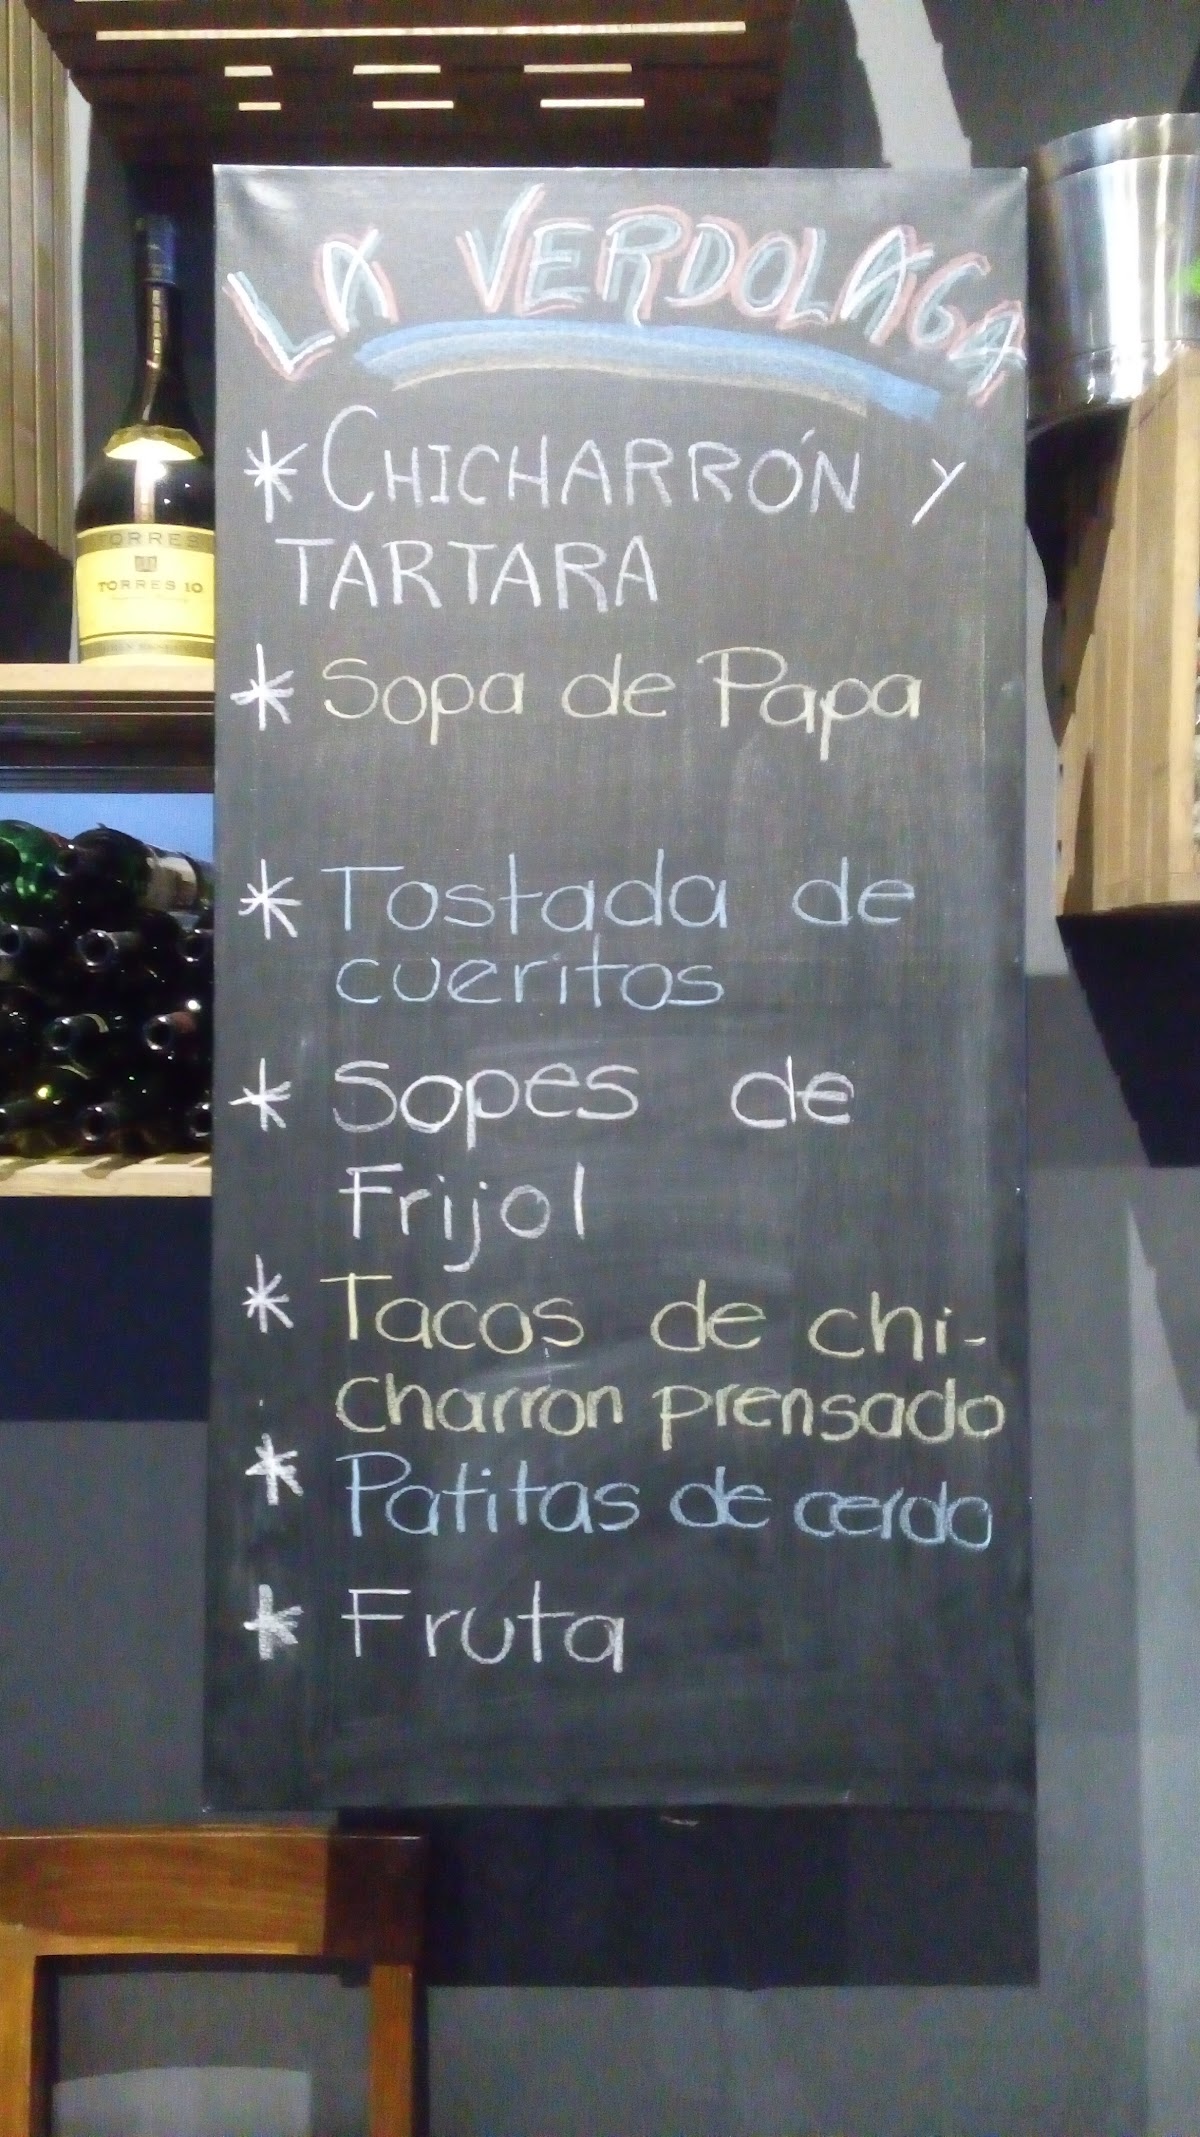 LA VERDOLAGA
* CHICHARRÓN Y
TARTARA
* Sopa de Papa
* Tostada de
cueritos
* Sopes de
Frijol
* Tacos de chi-
charron prensado
* Patitas de cerdo
* Fruta
TORRES
TORRES 10